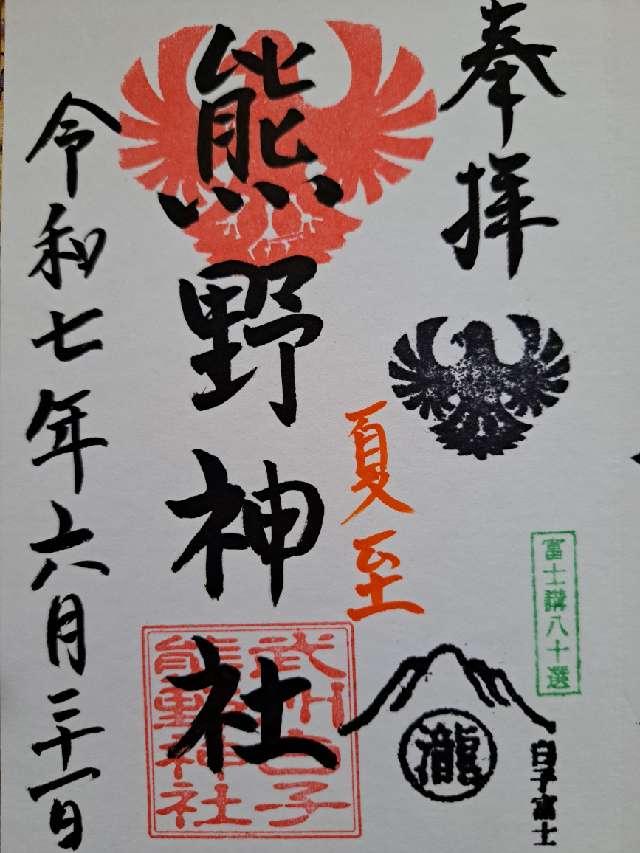 奉拝
富士講八十選
瀧
白子富士
夏至
熊野神社
武州白子
熊野神社
令和七年六月二十一日